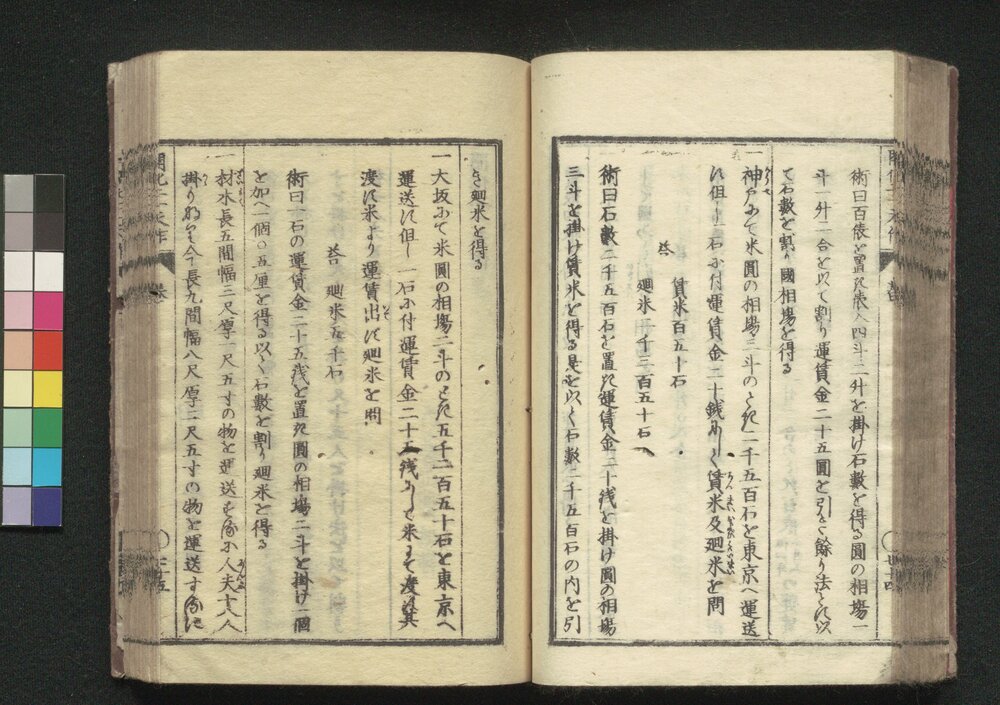 術曰百俵を置き俵入四斗二升を掛け石數を得る圓の相塲一
斗一升二合を以て割り運賃金二十五圓を引き餘り法とし以
て石數を割り國相塲を得る
一神戸ニて米圓の相塲三斗のとき二千五百石を東京へ運送
し但し一石ニ付運賃金二十銭ニして賃米及廻米を問
答 賃米百五十石
廻米二千三百五十石
術曰石數二千五百石を置き運賃金二十銭を掛け圓の相塲
三斗を掛け賃米を得る是を以て石數二千五百石の内を引
き廻米を得る
一大坂ニて米圓の相塲二斗のとき五千二百五十石を東京へ
運送し但し一石ニ付運賃金二十五銭ニして米にて渡し其
渡し米より運賃出し廻米を問
答 廻米五千石
術曰一石の運賃金二十五銭を置き圓の相塲二斗を掛け一個
を加へ一個〇五厘を得る以て石數を割り廻米を得る
一材木長五間幅三尺厚一尺五寸の物を運送する人夫十八人
掛り今長九間幅八尺厚二尺五寸の物を運送する